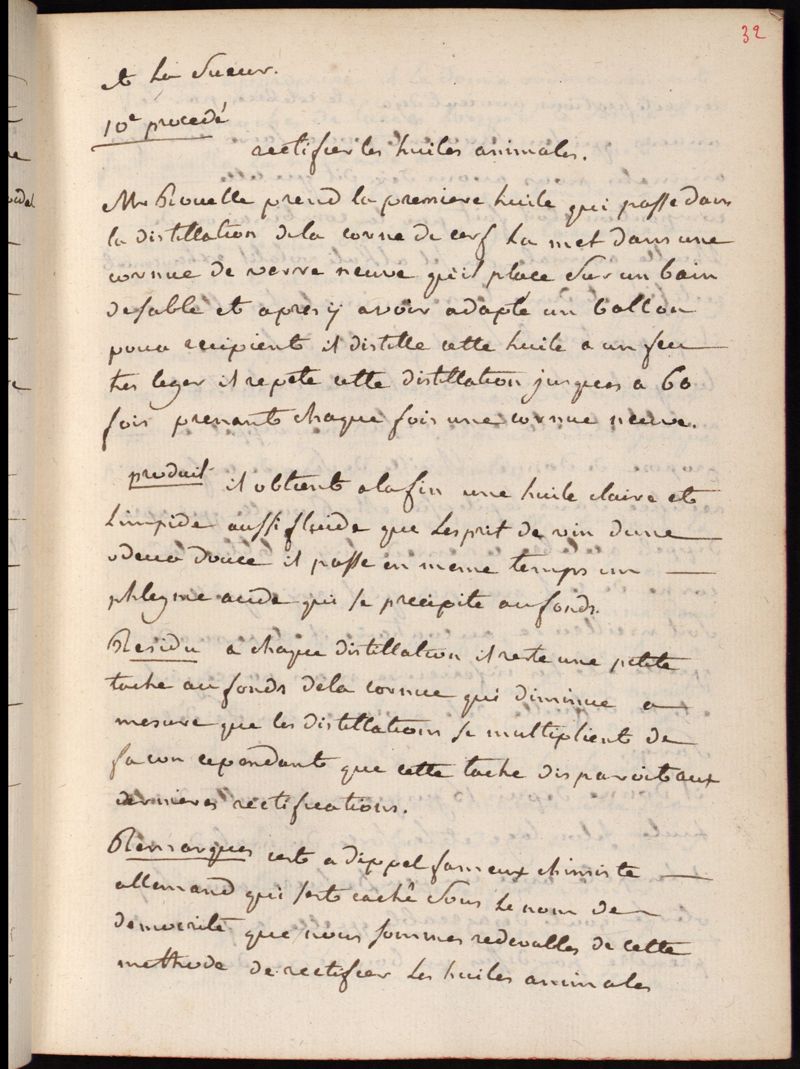 32
et la sueur.
10e procedé
rectifier les huiles animales.
Mr Rouelle prend la premiere huile qui passe dans
la distillation dela corne de cerf la met dans une
cornue de verre neuve qu'il place sur un bain
desable et apres y avoir adapté un ballon
pour recipient il distille cette huile a un feu
tres leger il repete cette distillation jusques a 60
fois prenant chaque fois une cornue neuve.
produit il obtient alafin une huile claire et
limpide aussi fluide que lesprit de vin dune
odeur douce il passe en meme temps un
phlegme acide qui se precipite aufonds.
Residu a chaque distillation il reste une petite
tache aufonds dela cornue qui diminue a
mesure que les distillations se multiplient de
facon cependant que cette tache disparoit aux
dernieres rectifications.
Remarques cest a dippel fameux chimiste
allemand qui sest caché sous le nom de
democrite que nous sommes redevalles de cette
methode de rectifier les huiles animales